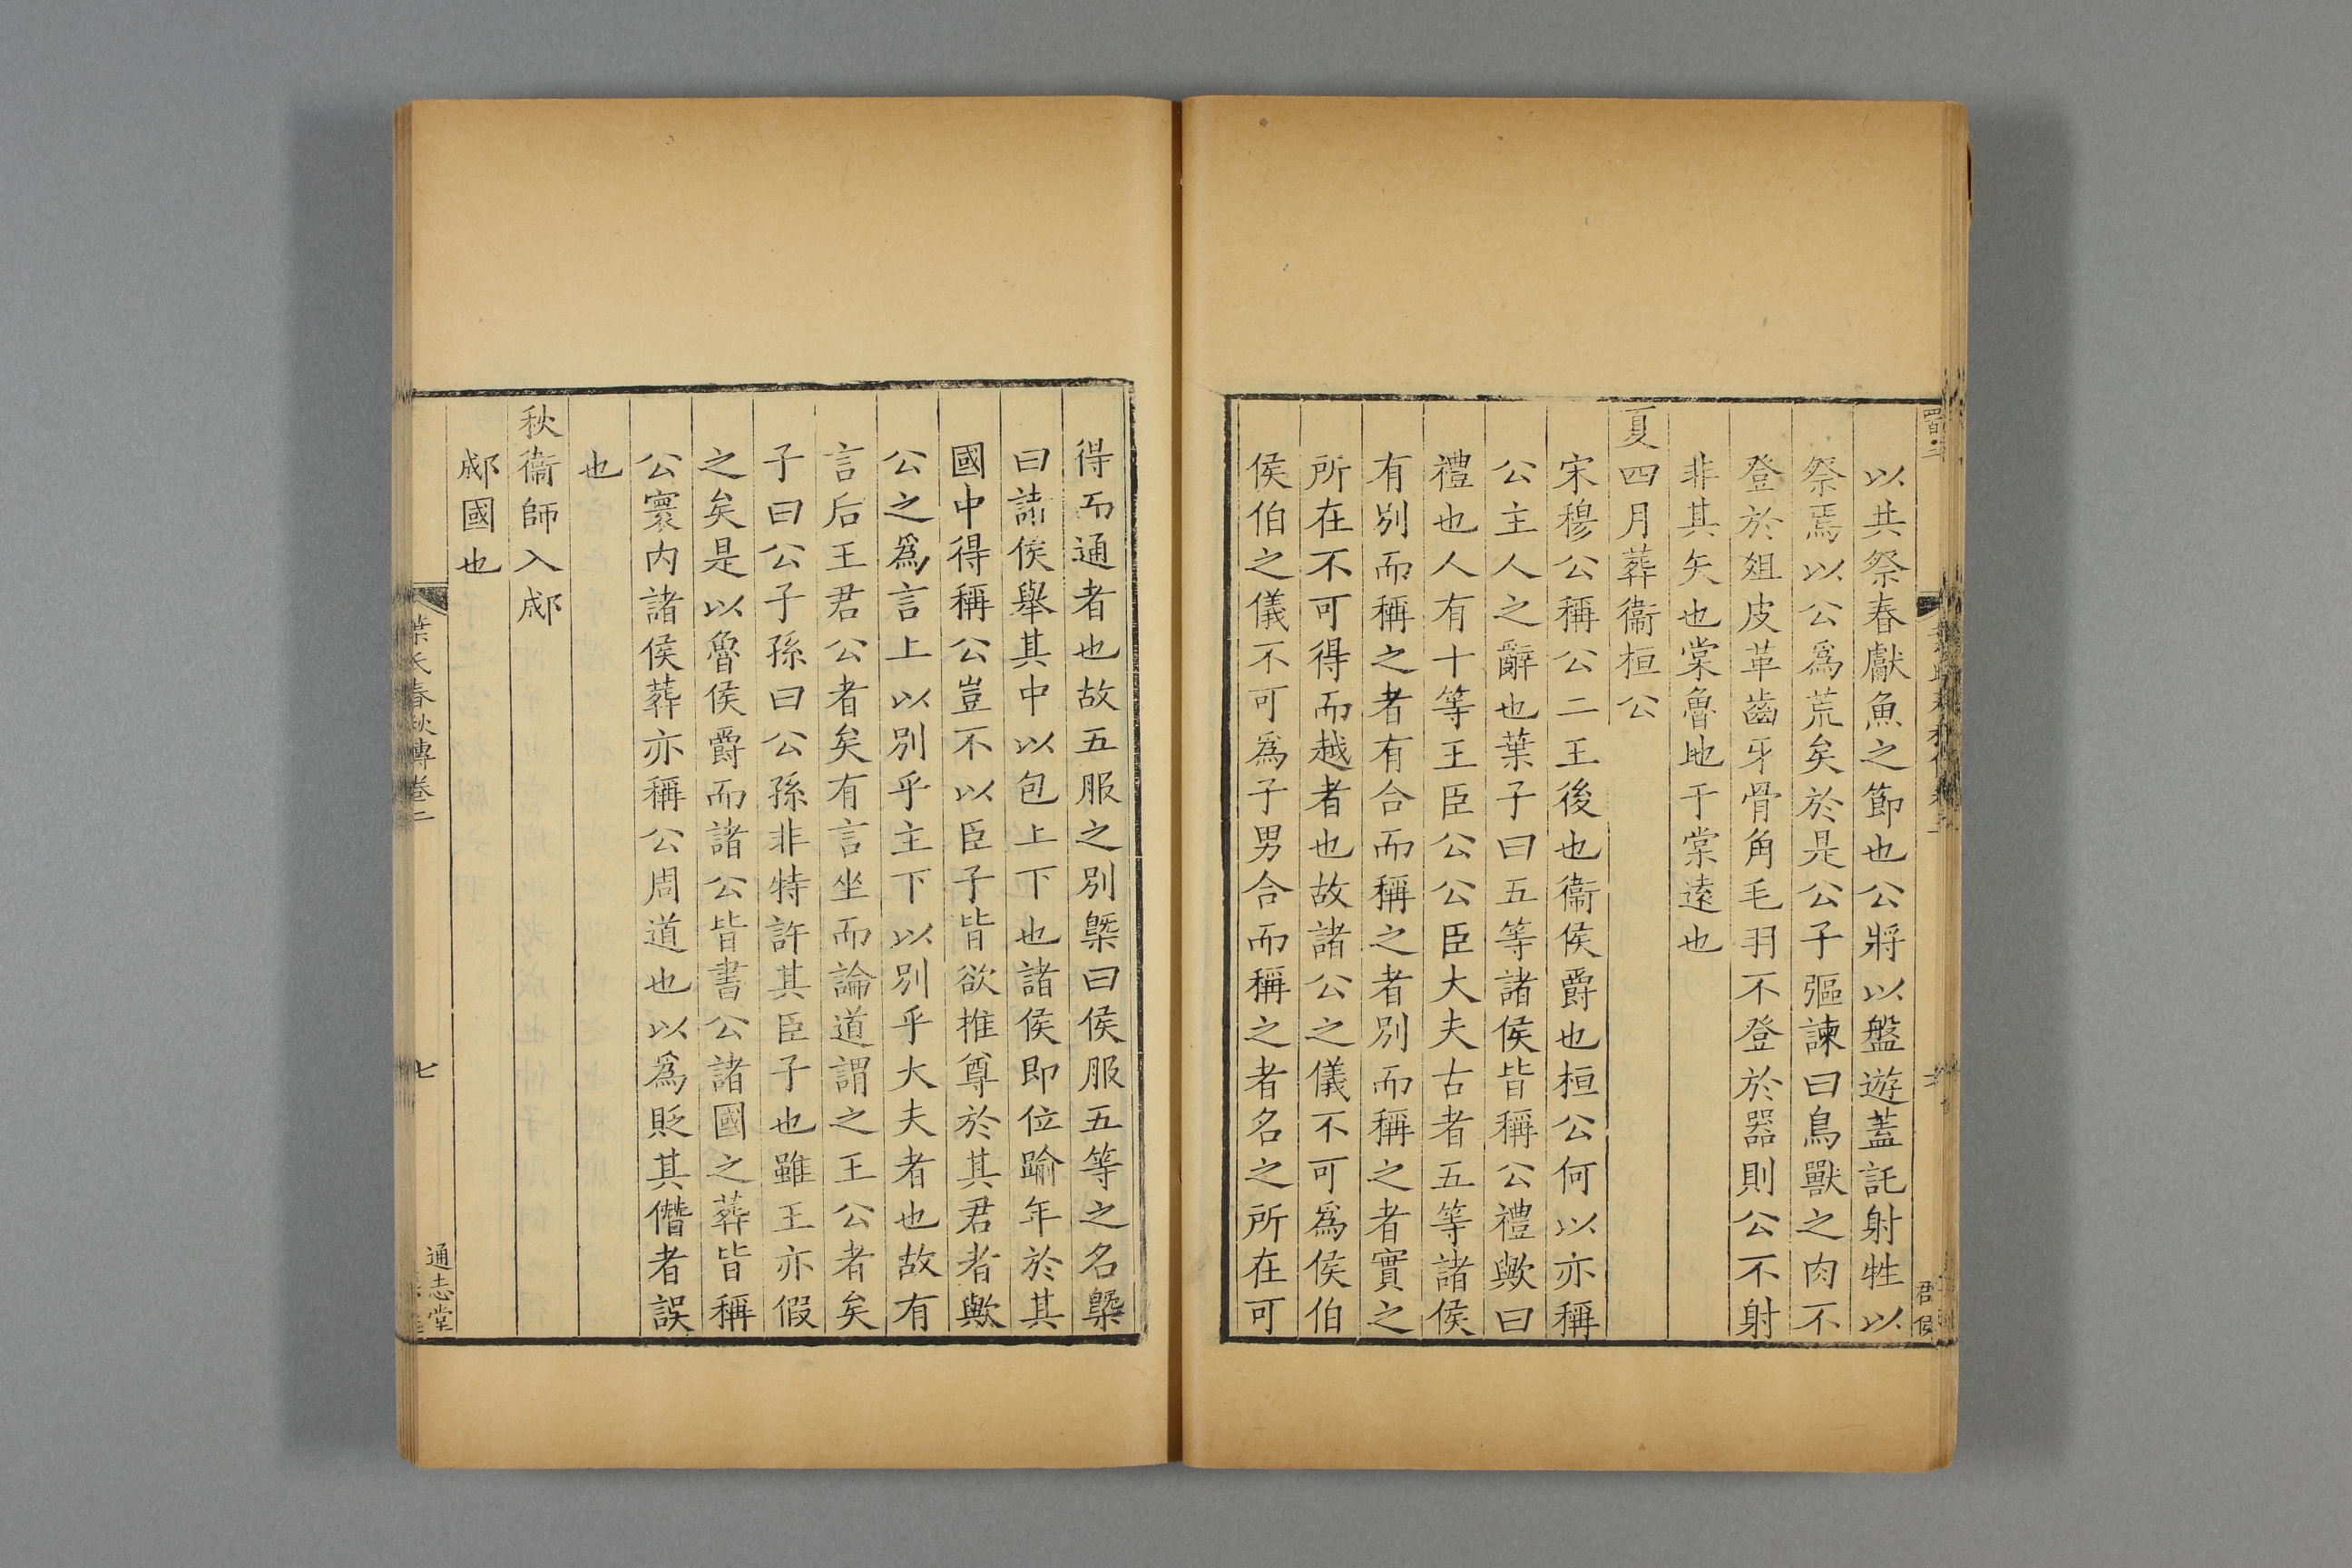 以共祭春獻魚之節也公將以盤遊蓋託射牲以
祭焉以公爲荒矣於是公子彄諫曰鳥獸之肉不
登於俎皮革齒牙骨角毛羽不登於器則公不射
非其矢也棠魯地于棠遠也
夏四月葬衞桓公
宋穆公稱公二王後也衞侯爵也桓公何以亦稱
公主人之辭也葉子曰五等諸侯皆稱公禮歟曰
禮也人有十等王臣公公臣大夫古者五等諸侯
有別而稱之者有合而稱之者別而稱之者實之
所在不可得而越者也故諸公之儀不可爲侯伯
侯伯之儀不可爲子男合而稱之者名之所在可
得而通者也故五服之別槩曰侯服五等之名槩
曰諸侯舉其中以包上下也諸侯即位踰年於其
國中得稱公豈不以臣子皆欲推尊於其君者歟
公之爲言上以別乎主下以別乎大夫者也故有
言后王君公者矣有言坐而論道謂之王公者矣
子曰公子孫曰公孫非特許其臣子也雖王亦假
之矣是以魯侯爵而諸公皆書公諸國之葬皆稱
公寰内諸侯葬亦稱公周道也以爲貶其僭者誤
也
秋衞師入郕
郕國也
葉氏春秋傳卷二
七
通志堂